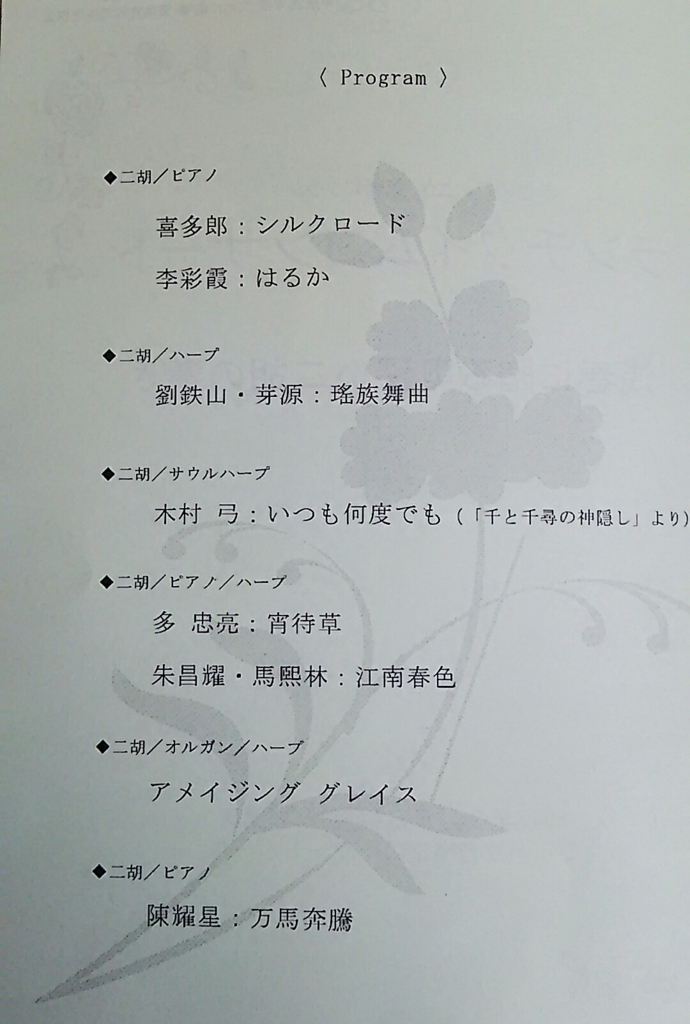 〈 Program 〉
◆二胡／ピアノ
喜多郎：シルクロード
李彩霞：はるか
◆二胡／ハープ
劉鉄山・芽源：瑤族舞曲
◆二胡／サウルハープ
木村 弓：いつも何度でも（「千と千尋の神隠し」より)
◆二胡／ピアノ／ハープ
多 忠亮：宵待草
朱昌耀・馬熙林：江南春色
◆二胡／オルガン／ハープ
アメイジング グレイス
◆二胡／ピアノ
陳耀星：万馬奔騰